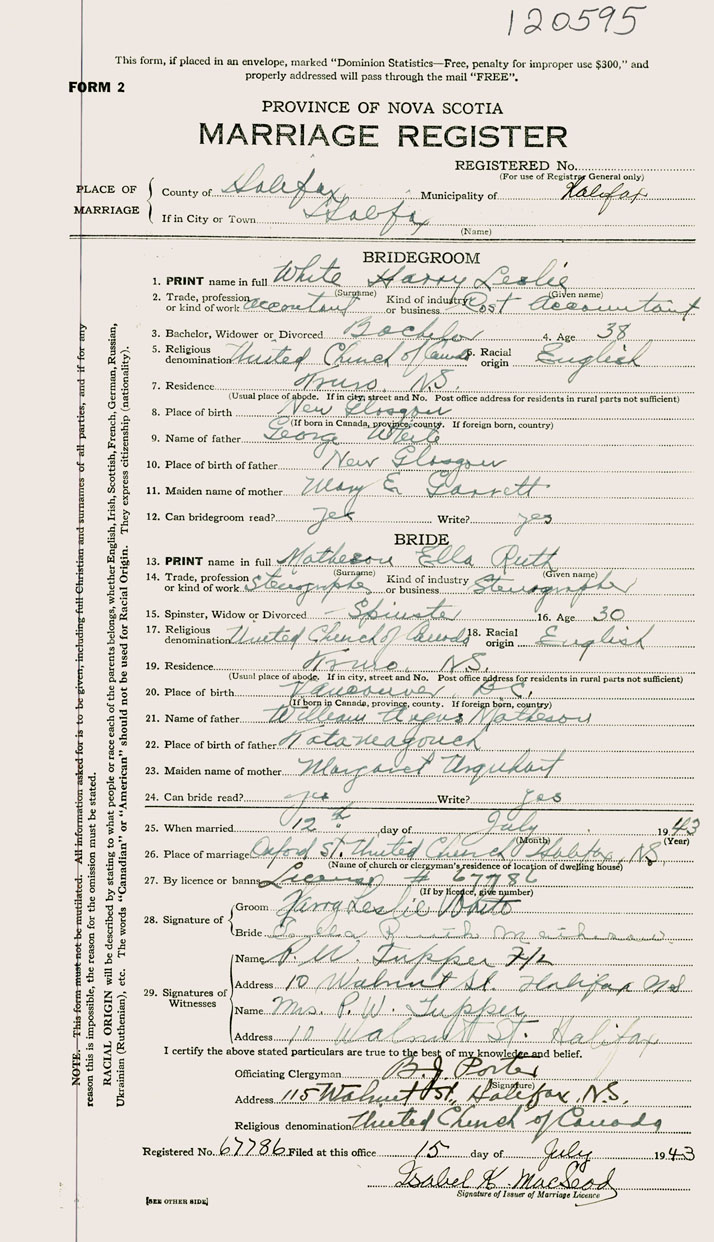 120595
This form, if placed in an envelope, marked "Dominion Statistics—Free, penalty for improper use $300," and
properly addressed will pass through the mail "FREE".
FORM 2
PROVINCE OF NOVA SCOTIA
MARRIAGE REGISTER
REGISTERED No.
(For use of Registrar General only)
PLACE OF MARRIAGE
County of Halifax Municipality of Halifax
If in City or Town Halifax
(Name)
BRIDEGROOM
1. PRINT name in full White Harry Leslie
(Surname) (Given name)
2. Trade, profession or kind of work accountant Kind of industry or business Cost Accountant
3. Bachelor, Widower or Divorced Bachelor 4. Age 38
5. Religious denomination United Church of Canada 6. Racial origin English
7. Residence Truro, N.S.
(Usual place of abode. If in city, street and No. Post office address for residents in rural parts not sufficient)
8. Place of birth New Glasgow
(If born in Canada, province, county. If foreign born, country)
9. Name of father George White
10. Place of birth of father New Glasgow
11. Maiden name of mother Mary E Garrett
12. Can bridegroom read? yes Write? yes
BRIDE
13. PRINT name in full Matheson Ella Ruth
(Surname) (Given name)
14. Trade, profession or kind of work Stenographer Kind of industry or business Stenographer
15. Spinster, Widow or Divorced - Spinster 16. Age 30
17. Religious denomination United Church of Canada 18. Racial origin English
19. Residence Truro, N.S.
(Usual place of abode. If in city, street and No. Post office address for residents in rural parts not sufficient)
20. Place of birth Vancouver, B.C.
(If born in Canada, province, county. If foreign born, country)
21. Name of father William Angus Matheson
22. Place of birth of father Tatamagouch
23. Maiden name of mother Margaret Urquhart
24. Can bride read? yes Write? yes
25. When married 12th day of July 1943
(Month) (Year)
26. Place of marriage Oxford St. United Church, Halifax, N.S.
(Name of church or clergyman's residence or location of dwelling house)
27. By licence or banns License # 67786
(If by licence, give number)
28. Signature of
Groom Harry Leslie White
Bride Ella Ruth Matheson
29. Signatures of Witnesses
Name P. W. Tupper F/L
Address 10 Walnut St. Halifax NS
Name Mrs. P. W. Tupper
Address 10 Walnut St. Halifax
I certify the above stated particulars are true to the best of my knowledge and belief.
Officiating Clergyman B. J. Porter
(Signature)
Address 115 Walnut St., Halifax, N.S.
Religious denomination United Church of Canada
Registered No. 67786 Filed at this office 15 day of July 1943
Isabel K. MacLeod
Signature of Issuer of Marriage Licence
[SEE OTHER SIDE]
NOTE. This form must not be mutilated. All information asked for is to be given, including full Christian and surnames of all parties, and if for any
reason this is impossible, the reason for the omission must be stated.
RACIAL ORIGIN will be described by stating to what people or race each of the parents belongs, whether English, Irish, Scottish, French, German, Russian,
Ukrainian (Ruthenian), etc. The words "Canadian" or "American" should not be used for Racial Origin. They express citizenship (nationality).